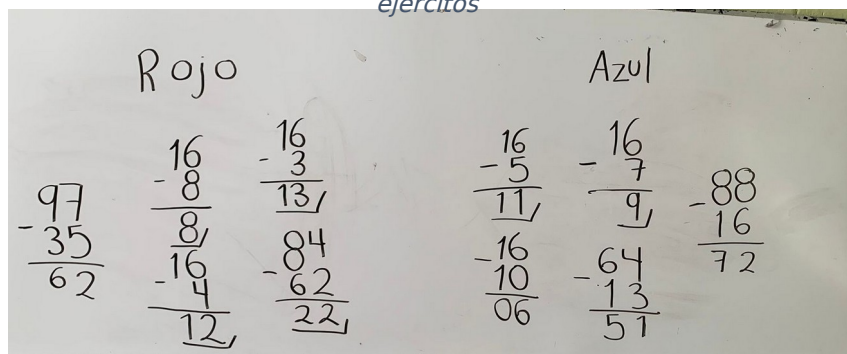 ejercitos
Rojo
97
- 35
62
16
- 8
8
16
- 4
12
16
- 3
13
84
- 62
22
Azul
16
- 5
11
- 16
10
06
16
- 7
9
- 64
13
51
- 88
16
72